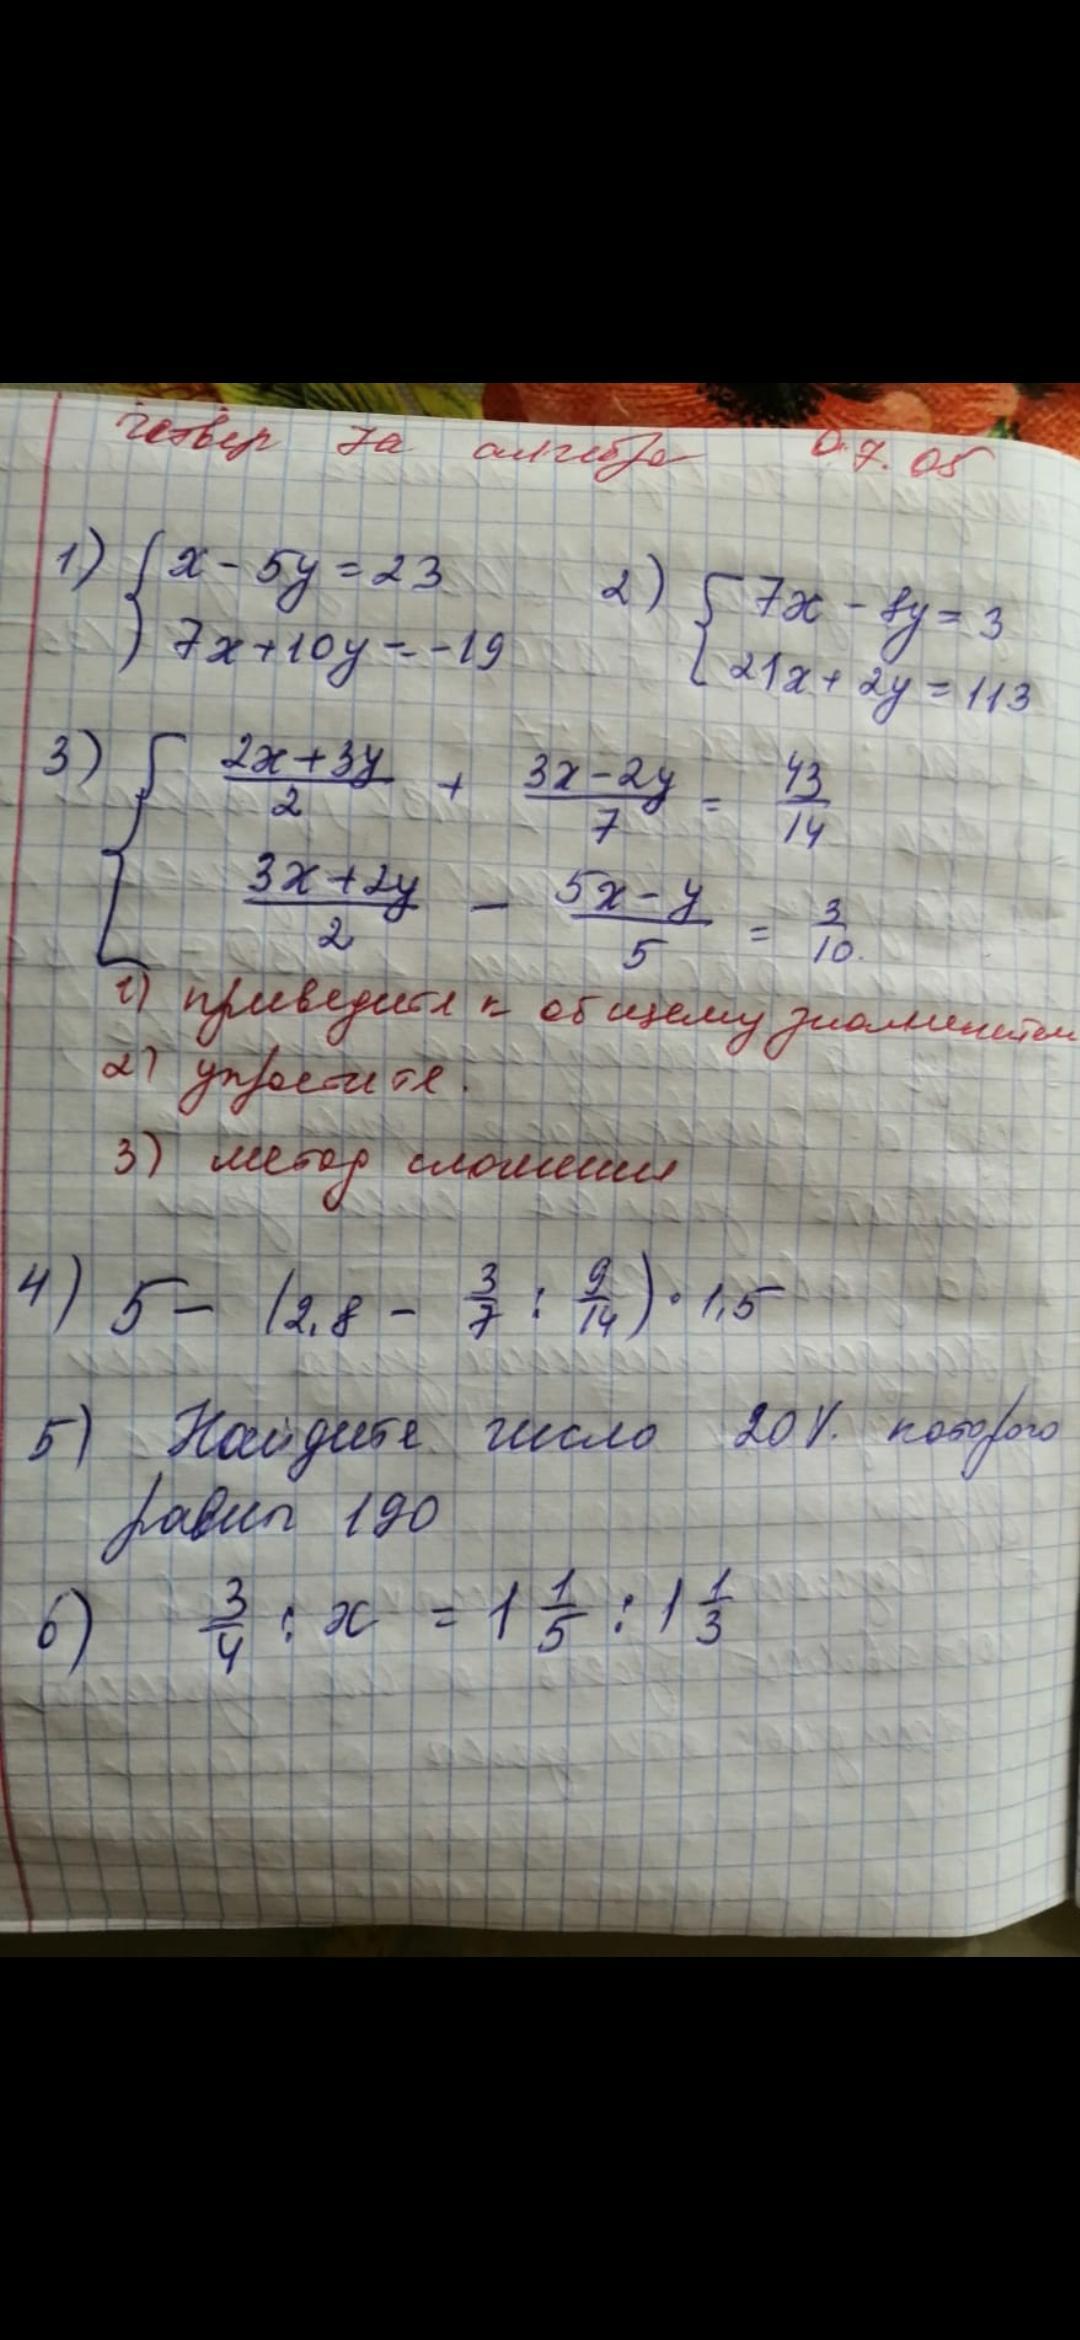 четвер за алгебра 07.05
1) { x - 5y = 23
7x + 10y = -19
2) { 7x - 8y = 3
21x + 2y = 113
3) { (2x+3y)/2 + (3x-2y)/7 = 43/14
(3x+2y)/2 - (5x-y)/5 = 3/10.
1) приведите к общему
2) упростите.
3) метод сложения
4) 5 - (2,8 - 3/7 : 9/14) · 1,5
5) Найдите число 20% которого
равны 190
6) 3/4 : x = 1 1/5 : 1 1/3